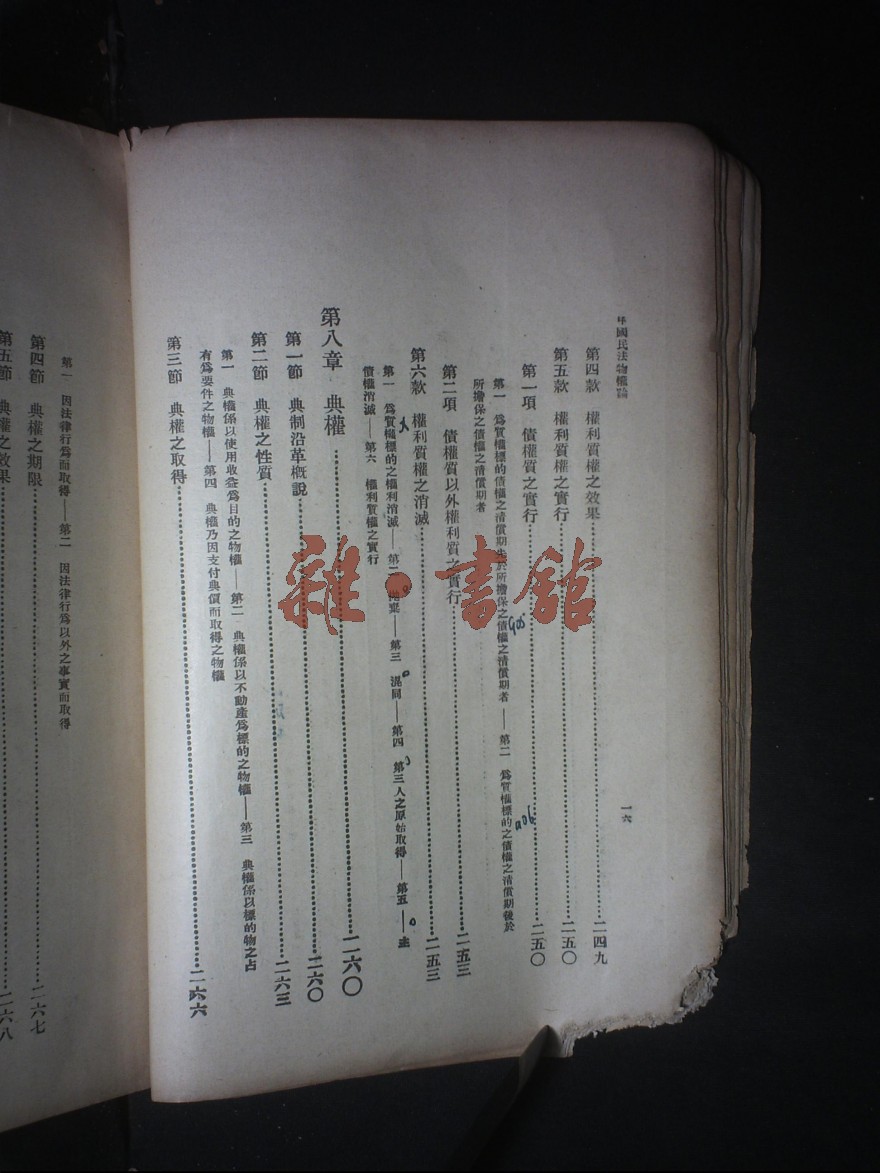 中國民法物權論
一六
第四款　權利質權之效果……二四九
第五款　權利質權之實行……二五〇
第一項　債權質之實行……二五〇
第一　為質權標的債權之清償期先於所擔保之債權之清償期者——第二　為質權標的之債權之清償期後於
所擔保之債權之清償期者
第二項　債權質以外權利質之實行……二五三
第六款　權利質權之消滅……二五三
第一　為質權標的之權利消滅——第二　拋棄——第三　混同——第四　第三人之原始取得——第五　主
債權消滅——第六　權利質權之實行
第八章　典權……二六〇
第一節　典制沿革概說……二六〇
第二節　典權之性質……二六三
第一　典權係以使用收益為目的之物權——第二　典權係以不動產為標的之物權——第三　典權係以標的物之占
有為要件之物權——第四　典權乃因支付典價而取得之物權
第三節　典權之取得……二六六
第一　因法律行為而取得——第二　因法律行為以外之事實而取得
第四節　典權之期限……二六七
第五節　典權之效果……二六八
雜·書館